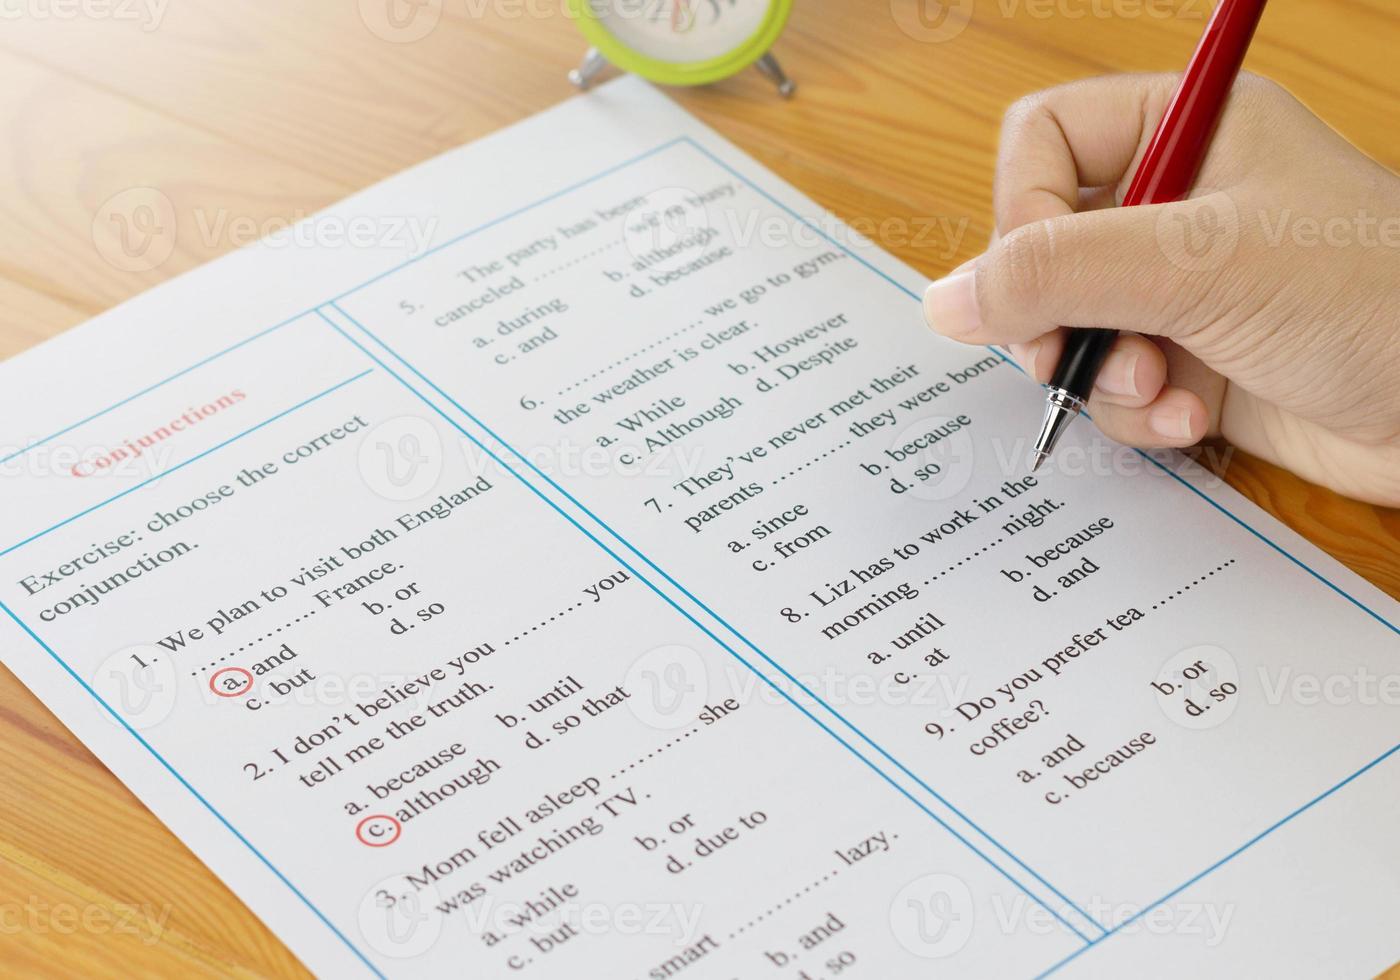 Conjunctions
Exercise: choose the correct
conjunction.
1. We plan to visit both England
............... France.
a. and b. or
c. but d. so
2. I don't believe you .......... you
tell me the truth.
a. because b. until
c. although d. so that
3. Mom fell asleep ............ she
was watching TV.
a. while b. or
c. but d. due to
smart ............... lazy.
b. and
d. so
5. The party has been
canceled ............... we're busy.
a. during b. although
c. and d. because
6. ..................... we go to gym,
the weather is clear.
a. While b. However
c. Although d. Despite
7. They've never met their
parents ........... they were born.
a. since b. because
c. from d. so
8. Liz has to work in the
morning ............... night.
a. until b. because
c. at d. and
9. Do you prefer tea ...............
coffee?
a. and b. or
c. because d. so
Vecteezy